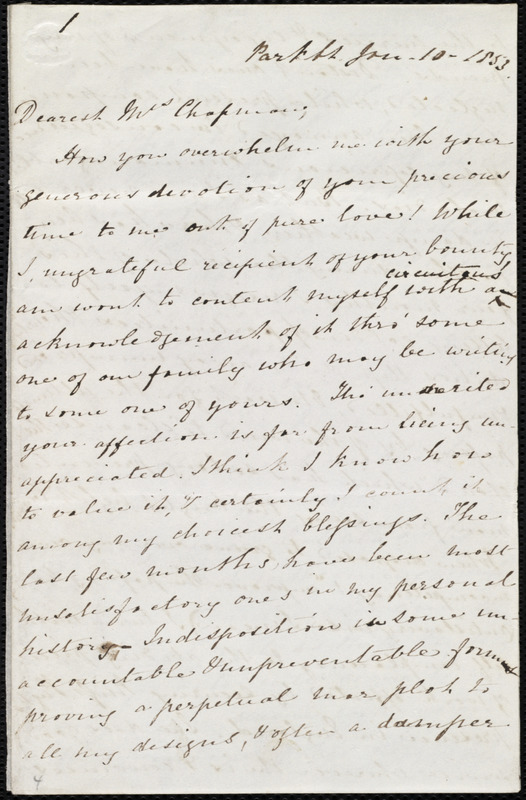 1
Park St. Jan. 10 - 1853.
Dearest Mrs Chapman,
How you overwhelm me with your
generous devotion of your precious
time to me out of pure love! While
I, ungrateful recipient of your bounty
circuitous
am wont to content myself with a
acknowledgement of it thro' some
one of our family who may be writing
to some one of yours. Tho' unmerited
your affection is far from being un-
appreciated. I think I know how
to value it, & certainly I count it
among my choicest blessings. The
last few months have been most
unsatisfactory ones in my personal
history - Indisposition in some un-
accountable & unpreventable form
proving a perpetual mar plot to
all my designs, & often a damper
4